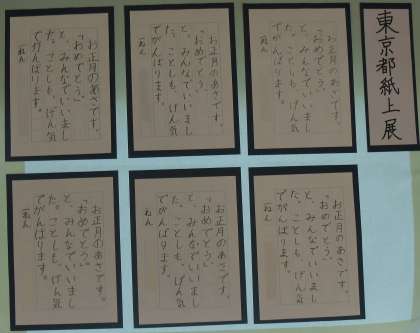 東京都紙上展
お正月のあさです。
「おめでとう。」
と、みんなでいいまし
た。ことしも、げん気
でがんばります。
一ねん
お正月のあさです。
「おめでとう。」
と、みんなでいいまし
た。ことしも、げん気
でがんばります。
一ねん
お正月のあさです。
「おめでとう。」
と、みんなでいいまし
た。ことしも、げん気
でがんばります。
一ねん
お正月のあさです。
「おめでとう。」
と、みんなでいいまし
た。ことしも、げん気
でがんばります。
一ねん
お正月のあさです。
「おめでとう。」
と、みんなでいいまし
た。ことしも、げん気
でがんばります。
一ねん
お正月のあさです。
「おめでとう。」
と、みんなでいいまし
た。ことしも、げん気
でがんばります。
一ねん